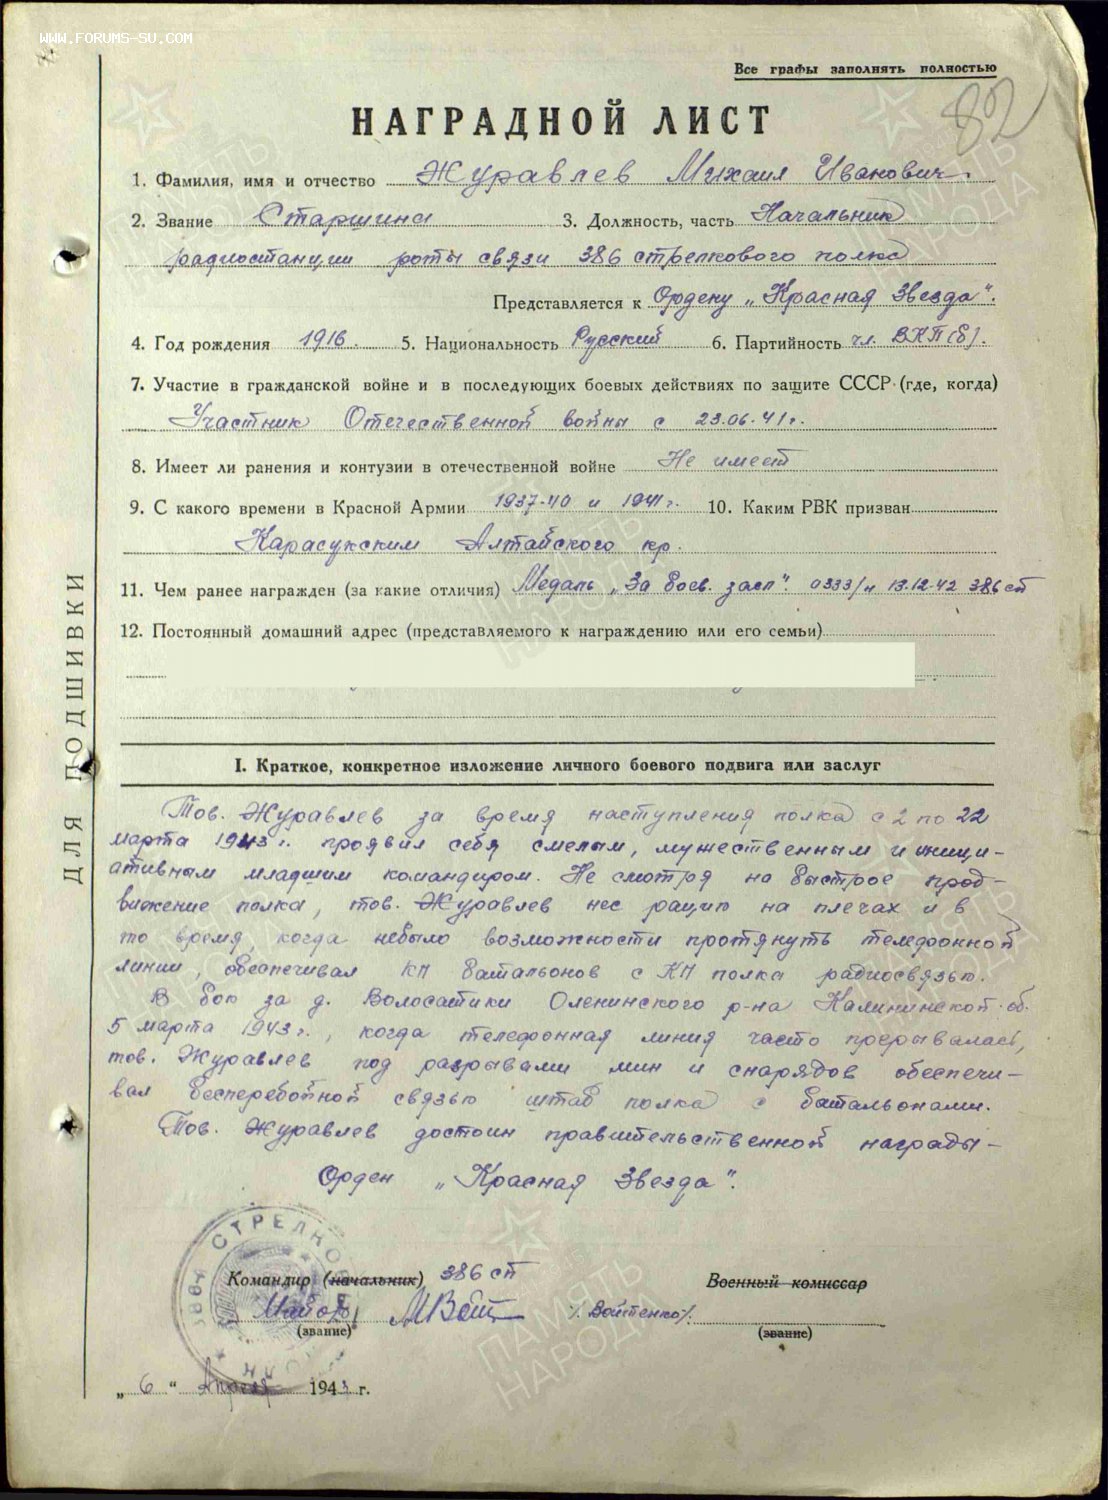 WWW.FORUMS-SU.COM
Все графы заполнять полностью
82
НАГРАДНОЙ ЛИСТ
1. Фамилия, имя и отчество Журавлев Михаил Иванович.
2. Звание Старшина 3. Должность, часть Начальник
радиостанции роты связи 386 стрелкового полка
Представляется к Ордену „Красная Звезда".
4. Год рождения 1916. 5. Национальность Русский 6. Партийность чл. ВКП(б).
7. Участие в гражданской войне и в последующих боевых действиях по защите СССР (где, когда)
Участник Отечественной войны с 23.06.41г.
8. Имеет ли ранения и контузии в отечественной войне Не имеет
9. С какого времени в Красной Армии 1937-40 и 1941г. 10. Каким РВК призван
Карасукским Алтайского кр.
11. Чем ранее награжден (за какие отличия) Медаль „За боев. засл". 0333/н 13.12.42 386 сп
12. Постоянный домашний адрес (представляемого к награждению или его семьи)
ДЛЯ ПОДШИВКИ
I. Краткое, конкретное изложение личного боевого подвига или заслуг
Тов. Журавлев за время наступления полка с 2 по 22
марта 1943г. проявил себя смелым, мужественным и иници-
ативным младшим командиром. Не смотря на быстрое прод-
вижение полка, тов. Журавлев нес рацию на плечах и в
то время, когда небыло возможности протянуть телефонной
линии, обеспечивал КП батальонов с КП полка радиосвязью.
В бою за д. Волосатики Оленинского р-на Калининской об.
5 марта 1943г., когда телефонная линия часто прерывалась,
тов. Журавлев под разрывами мин и снарядов обеспечи-
вал бесперебойной связью штаб полка с батальонами.
Тов. Журавлев достоин правительственной награды -
Орден „Красная Звезда".
СТРЕЛКОВ
Командир (начальник) 386 сп
Военный комиссар
Майор МВойт /Войтенко/.
(звание)
(звание)
„ 6 " Апреля 1943 г.
ПАМЯТЬ НАРОДА